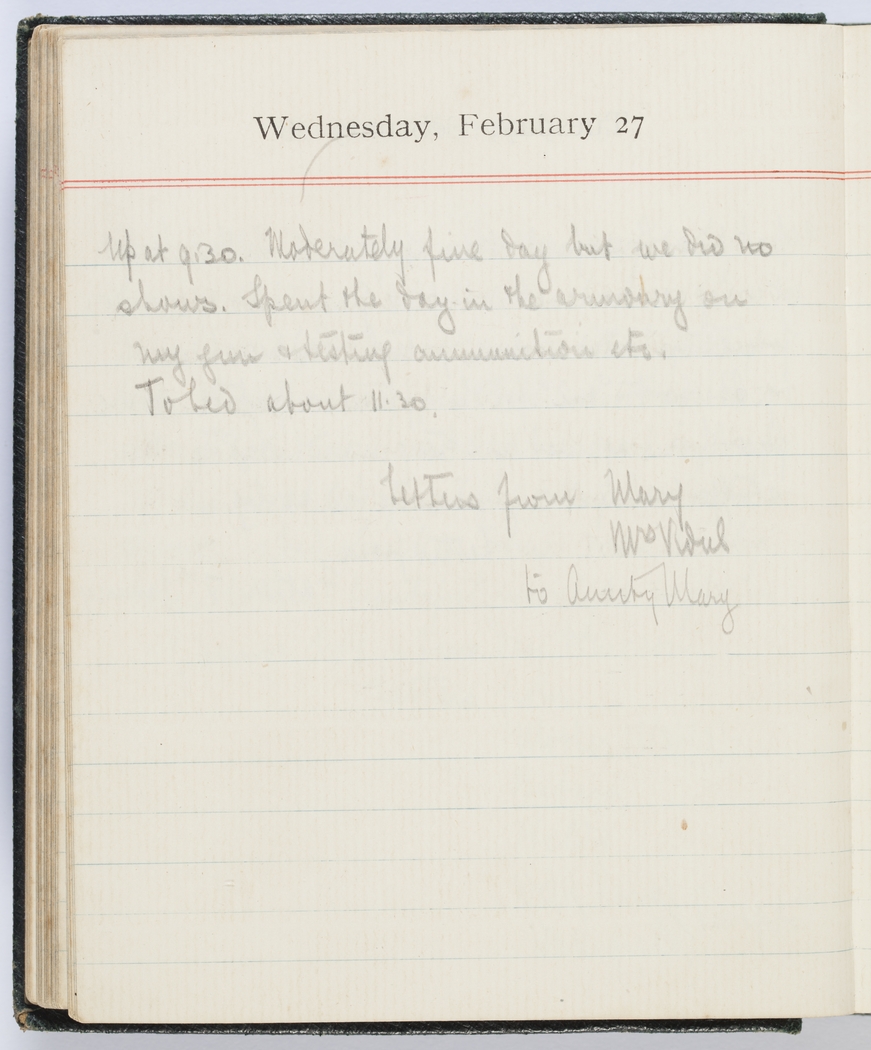 Wednesday, February 27
Up at 9.30. Moderately fine day but we did no
shows. Spent the day in the armoury on
my gun & testing ammunition etc.
To bed about 11.30.
Letters from Mary
Mrs Vidal
to Aunty Mary